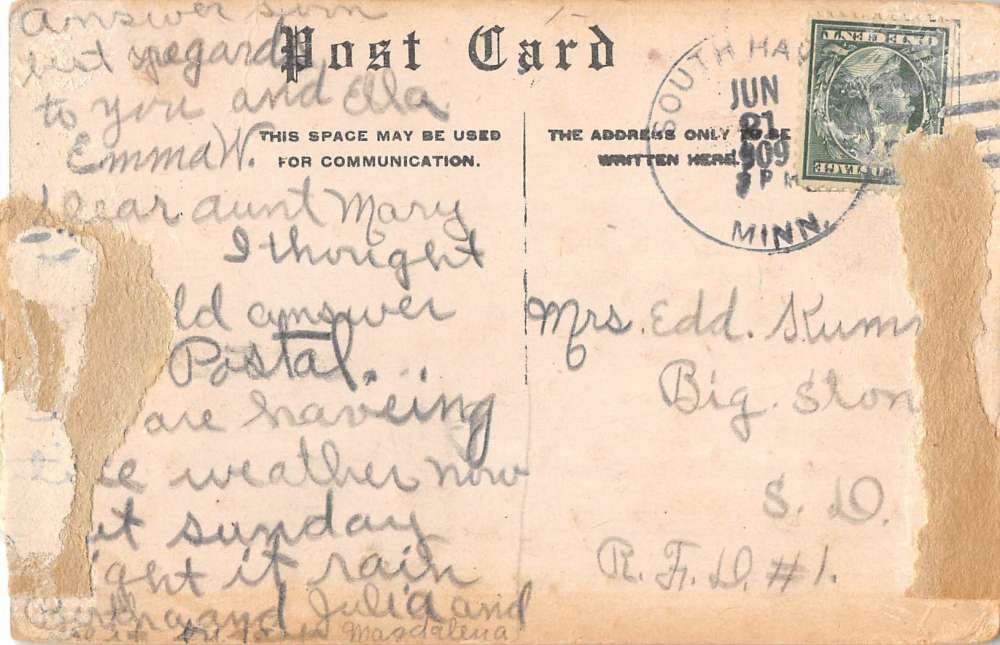 answer soon
best regards
to you and Ella
Emma W.
Post Card
THIS SPACE MAY BE USED
FOR COMMUNICATION.
THE ADDRESS ONLY TO BE
WRITTEN HERE.
SOUTH HA
JUN
21
1909
PM
MINN.
ONE CENT
Dear aunt Mary
I thought
ld answer
Postal.
are haveing
weather now
sunday
ght it rain
and Julia and
Magdalena
Mrs. Edd. Kum
Big. Ston
S. D.
R. F. D. #1.